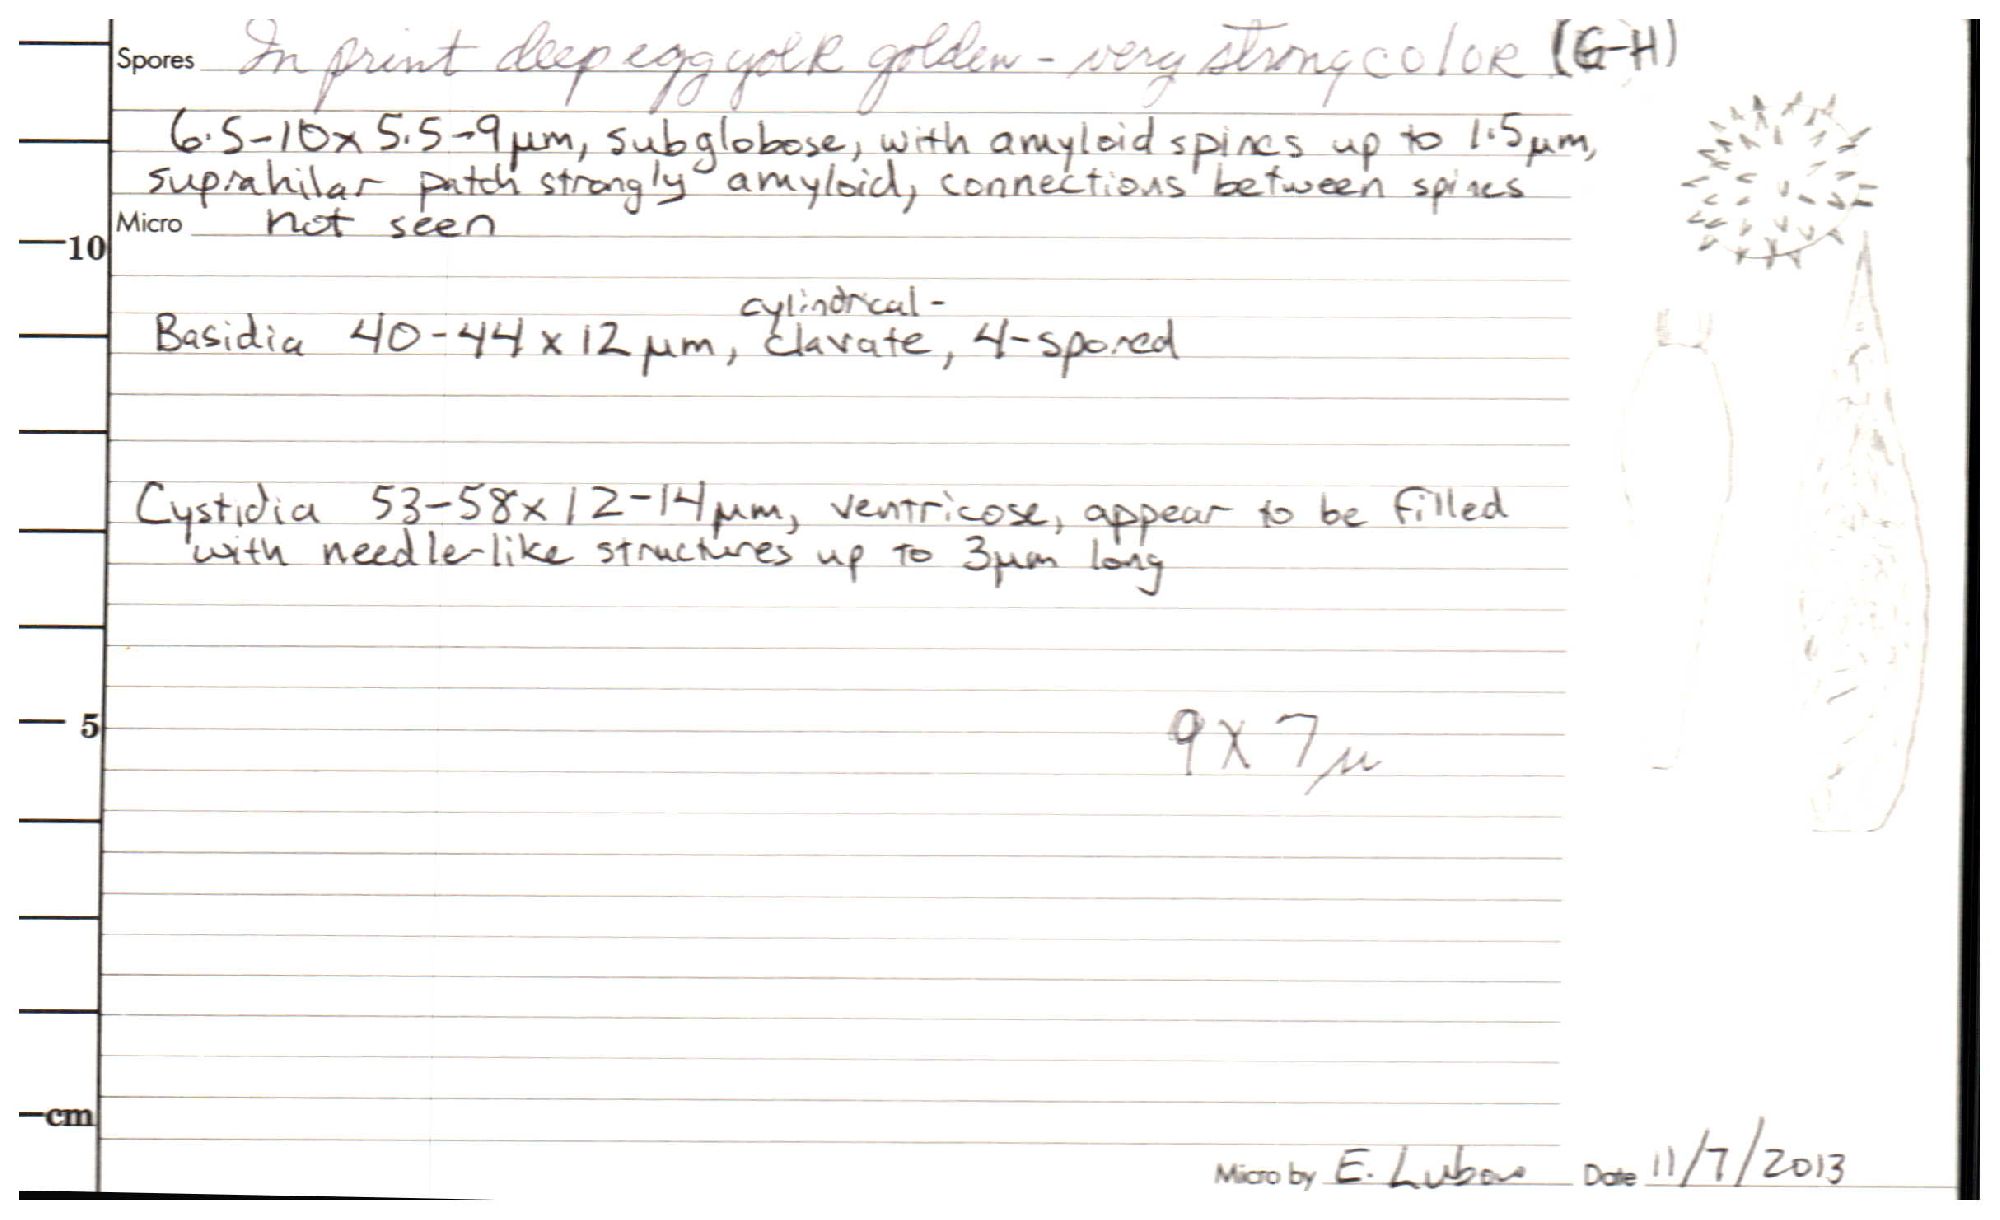 Spores In print deep egg yolk golden - very strong color (G-H)
6.5-10x5.5-9µm, subglobose, with amyloid spines up to 1.5µm,
suprahilar patch strongly amyloid, connections between spines
Micro not seen
10
cylindrical-
Basidia 40-44 x 12 µm, clavate, 4-spored
Cystidia 53-58x12-14µm, ventricose, appear to be filled
with needle-like structures up to 3µm long
5
9x7µ
cm
Micro by E. Lubow Date 11/7/2013